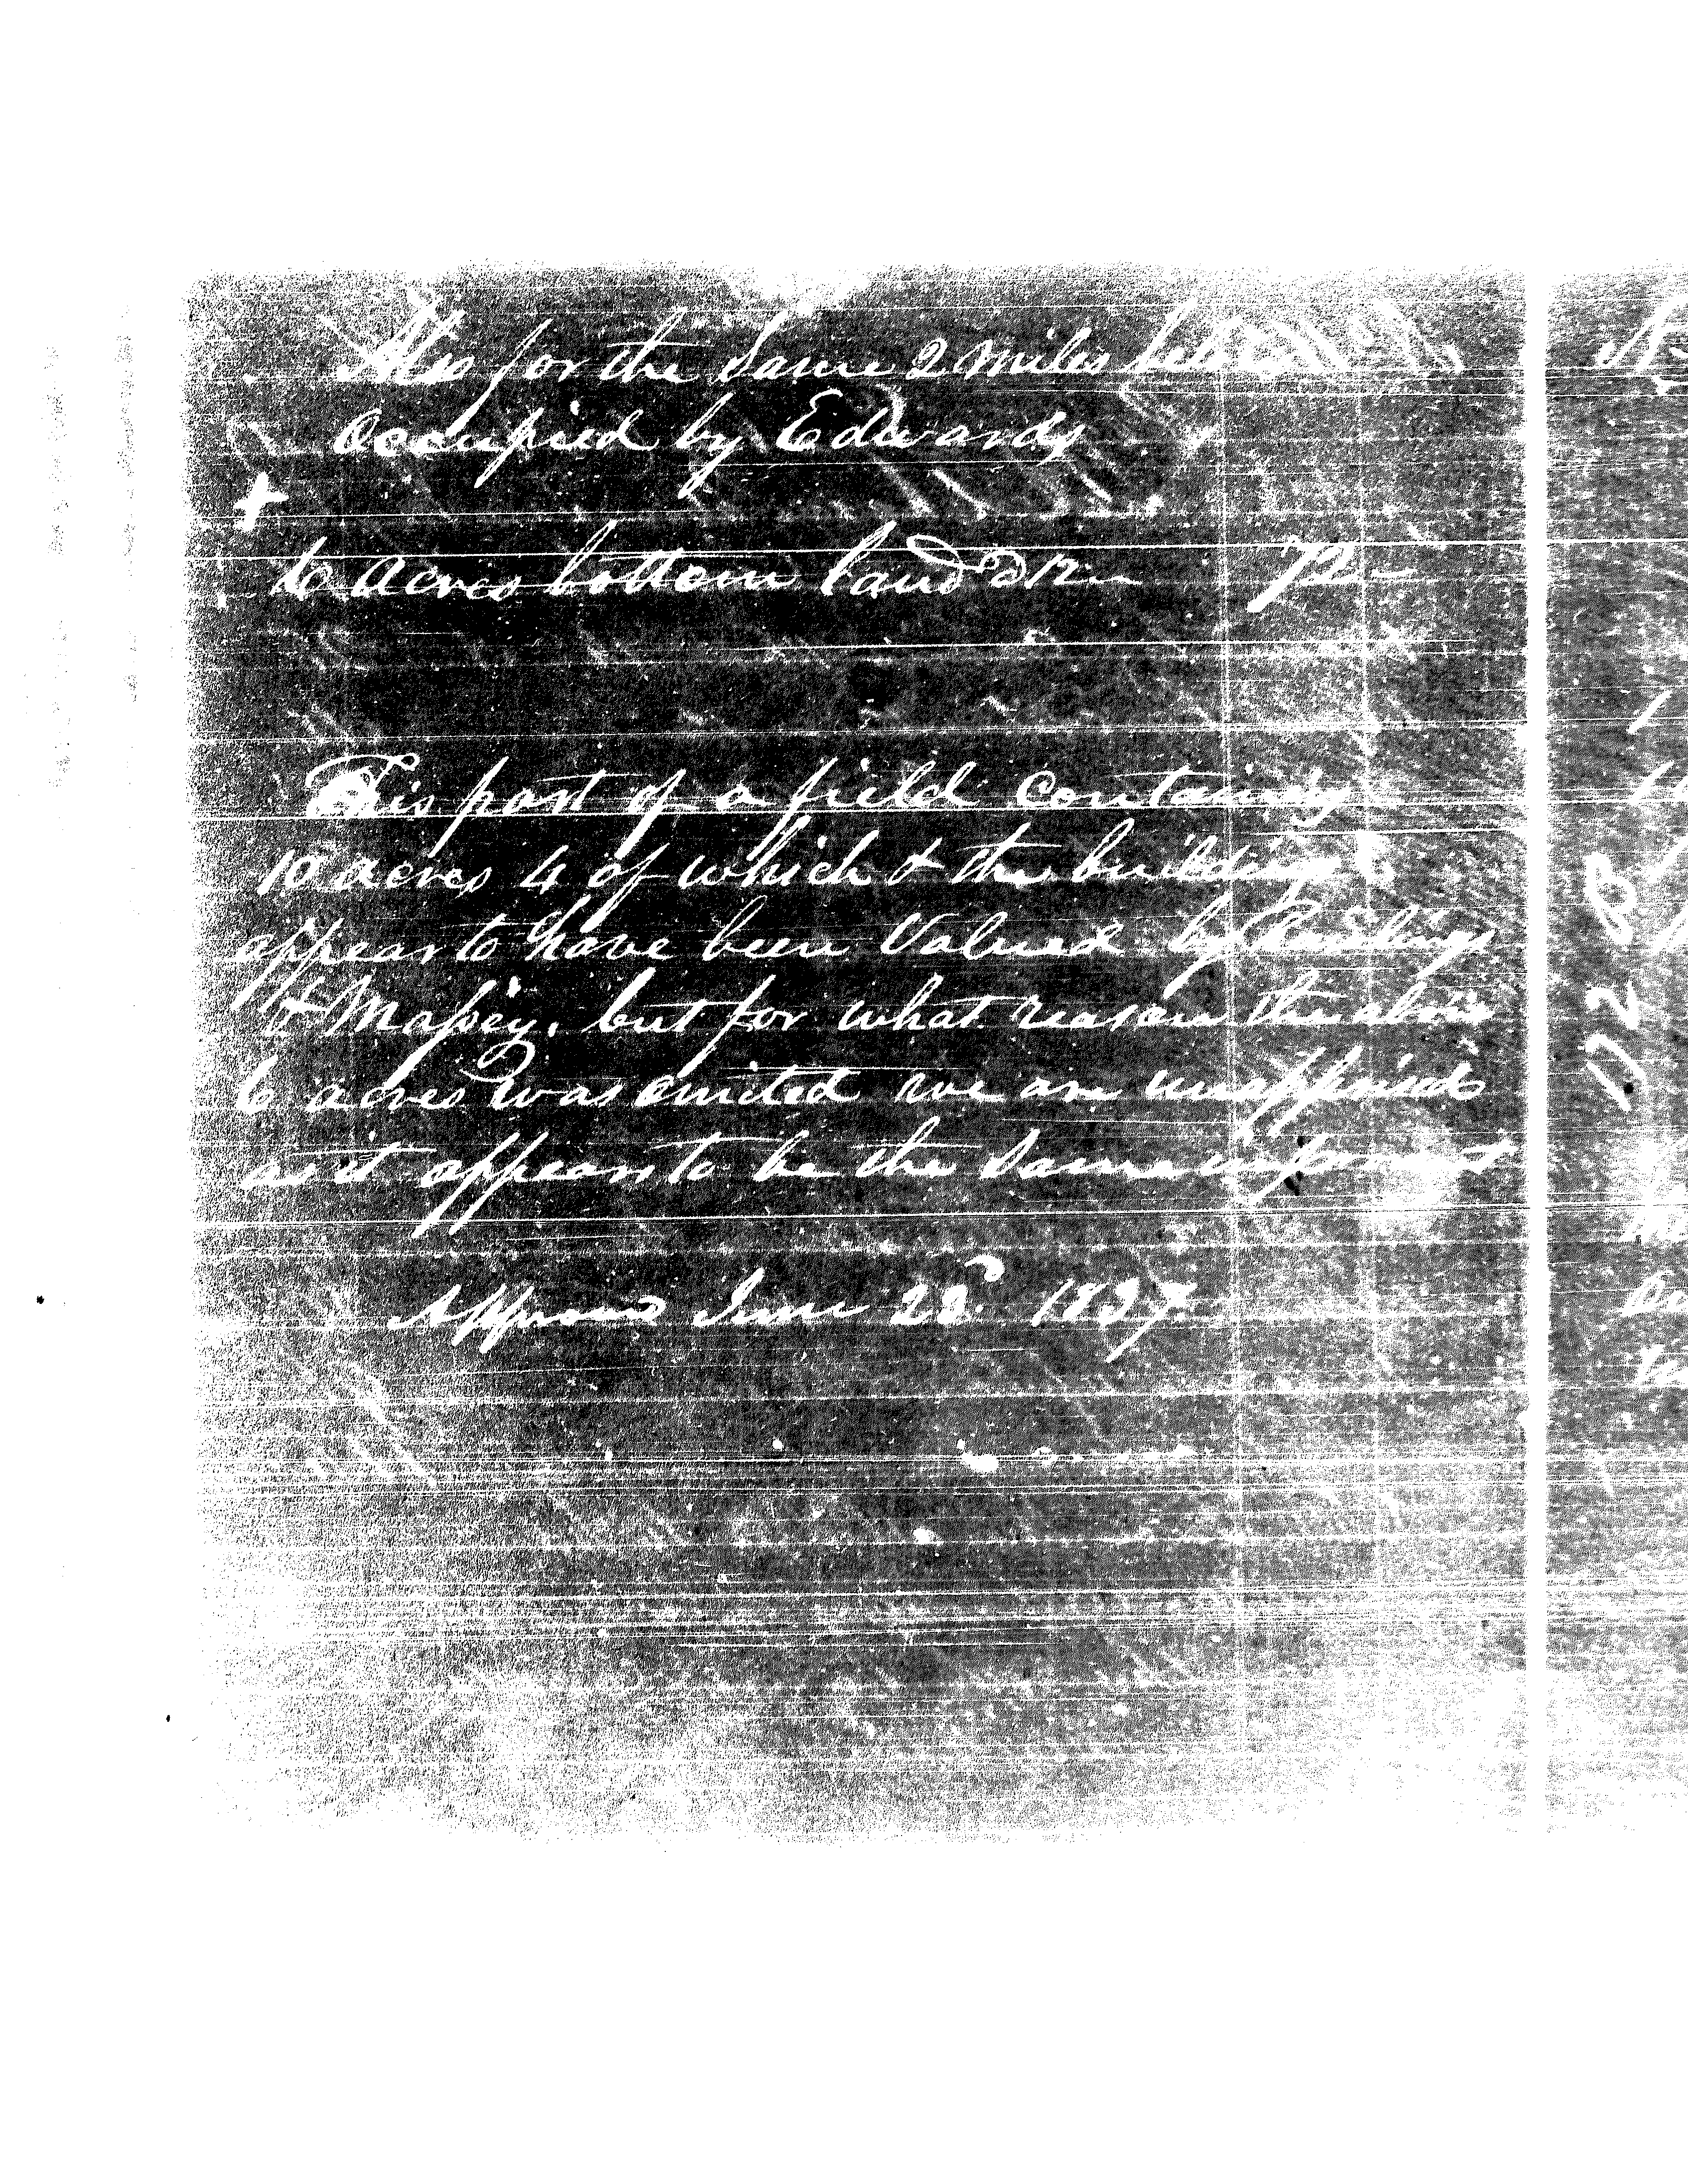 Also for the Same 2 miles
Occupied by Edwards
+
6 acres bottom land @ 12 72 -
This part of a field containing
10 acres 4 of which & the building
appear to have been Valued by Rawlings
& Massey. but for what reason the above
6 acres was omited we are unapprised
as it appears to be the Same
Approved June 23d 1837
1128